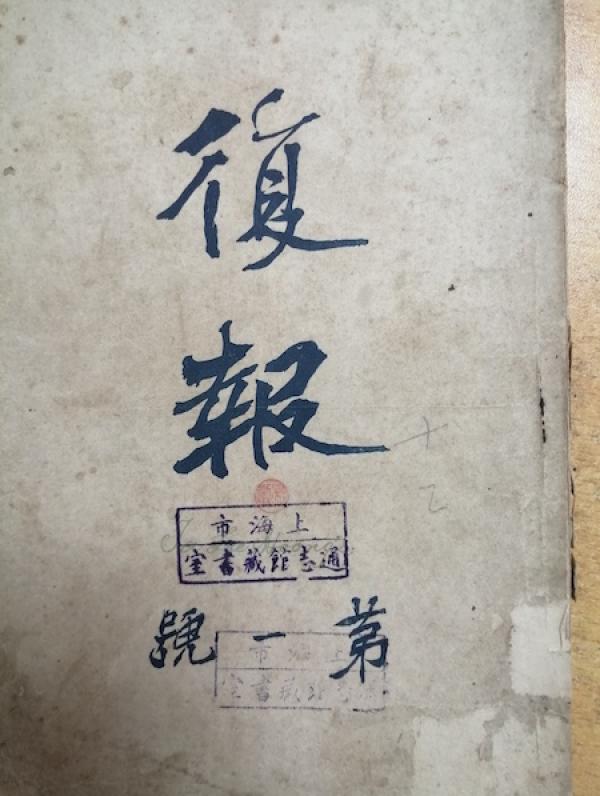 復
報
十
上海市
通志館藏書室
第一號
上海市
通志館藏書室